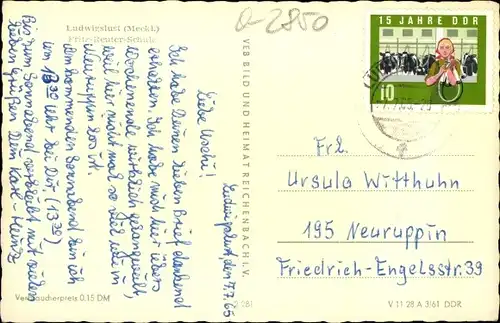 Ludwigslust (Meckl.)
Fritz-Reuter-Schule
a-2850
15 JAHRE DDR
10
Ludwigslust, den 7.7.65
Liebe Uschi!
Ich habe Deinen lieben Brief dankend
erhalten. Ich habe mich hier übers
Wochenende wirklich gelangweilt,
weil hier nicht mal so viel wie in
Neuruppin los ist.
Am kommenden Sonnabend bin ich
um Uhr bei Dir (13 30)
Bis zum Sonnabend verbleibt mit vielen
lieben Grüßen Dein Karl-Heinz
VEB BILD UND HEIMAT REICHENBACH I. V.
Frl.
Ursula Witthuhn
195 Neuruppin
Friedrich-Engelsstr. 39
Verbraucherpreis 0.15 DM
V 11 28 A 3/61 DDR